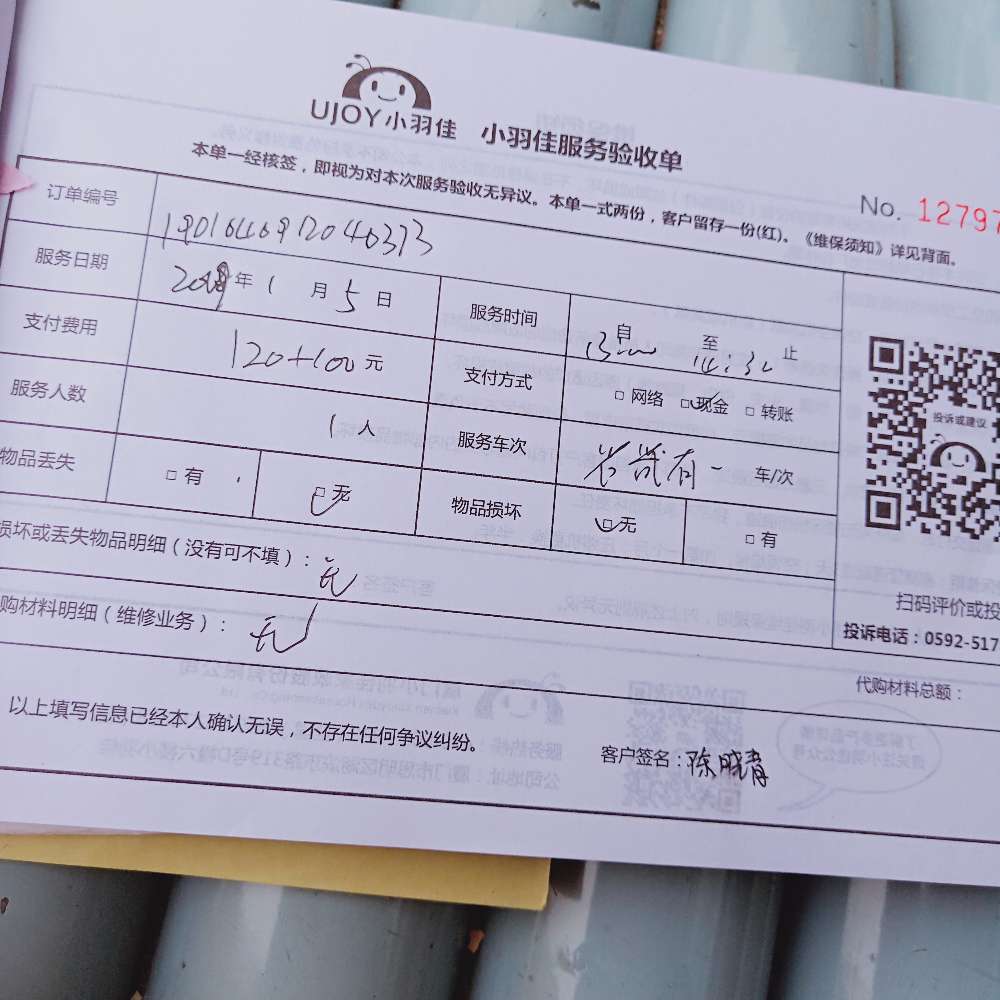 UJOY小羽佳 小羽佳服务验收单
本单一经核签，即视为对本次服务验收无异议。本单一式两份，客户留存一份(红)。《维保须知》详见背面。
No. 12797
订单编号 1901646912046373
服务日期 2019年1月5日 服务时间 自 至 14:30 止
支付费用 120+100元 支付方式 □网络 □现金 □转账
服务人数 1人 服务车次 车/次
物品丢失 □有 □无 物品损坏 □无 □有
损坏或丢失物品明细（没有可不填）：无
购材料明细（维修业务）：无
投诉或建议
扫码评价或投
投诉电话：0592-517
代购材料总额：
以上填写信息已经本人确认无误，不存在任何争议纠纷。
客户签名：陈晓青